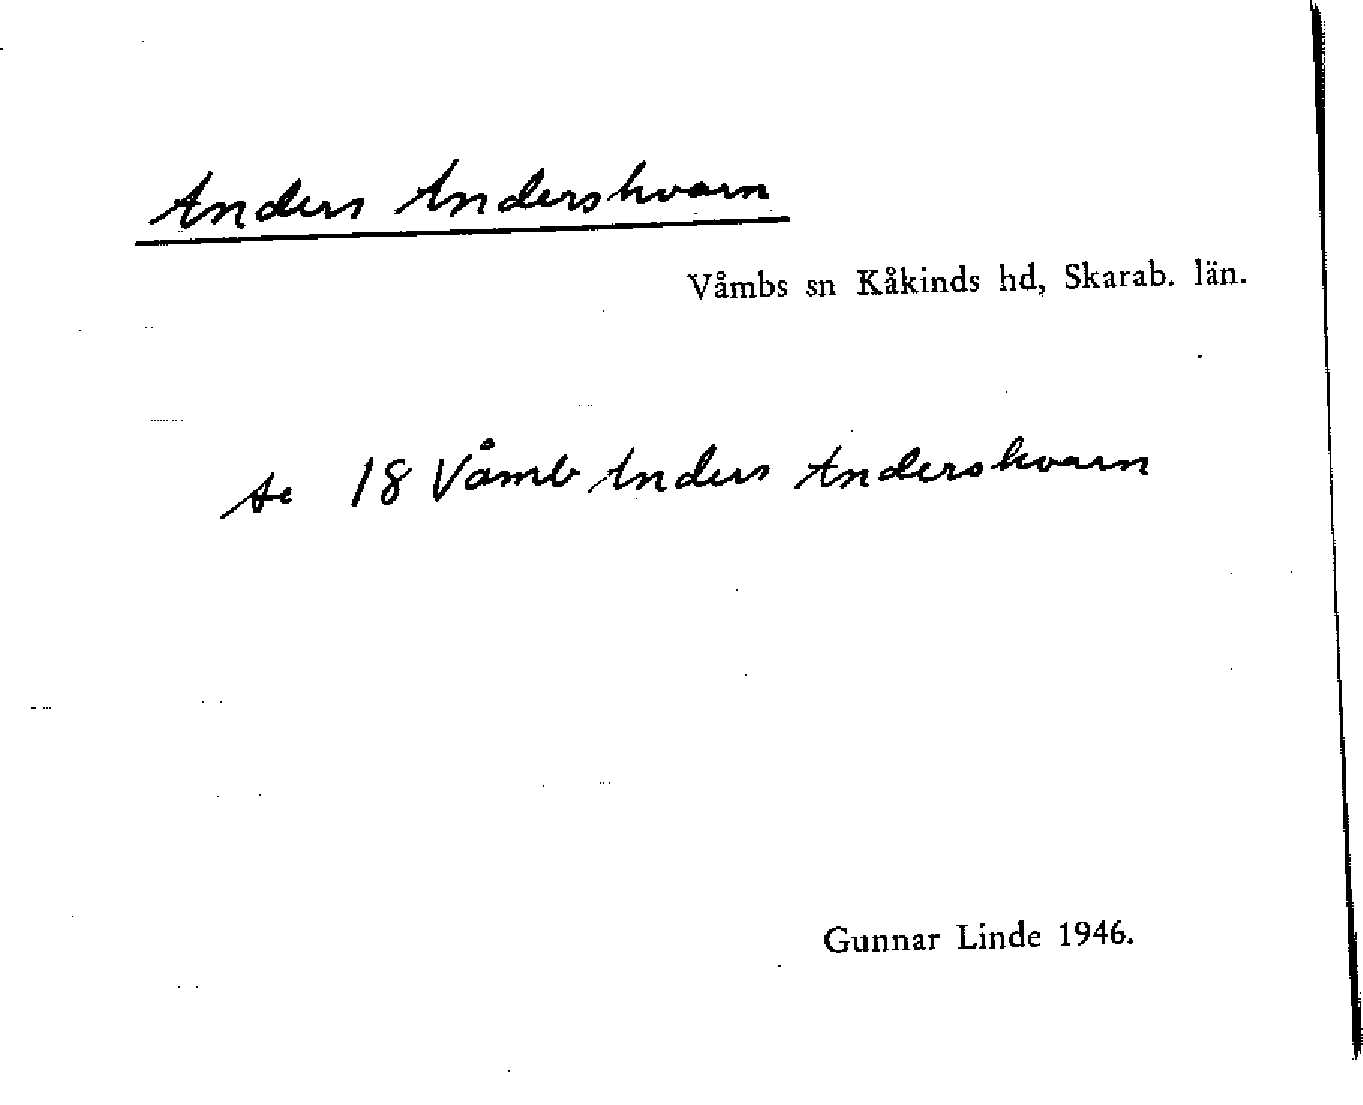 Anders Anderskvarn
Våmbs sn Kåkinds hd, Skarab. län.
se 18 Våmb Anders Anderskvarn
Gunnar Linde 1946.